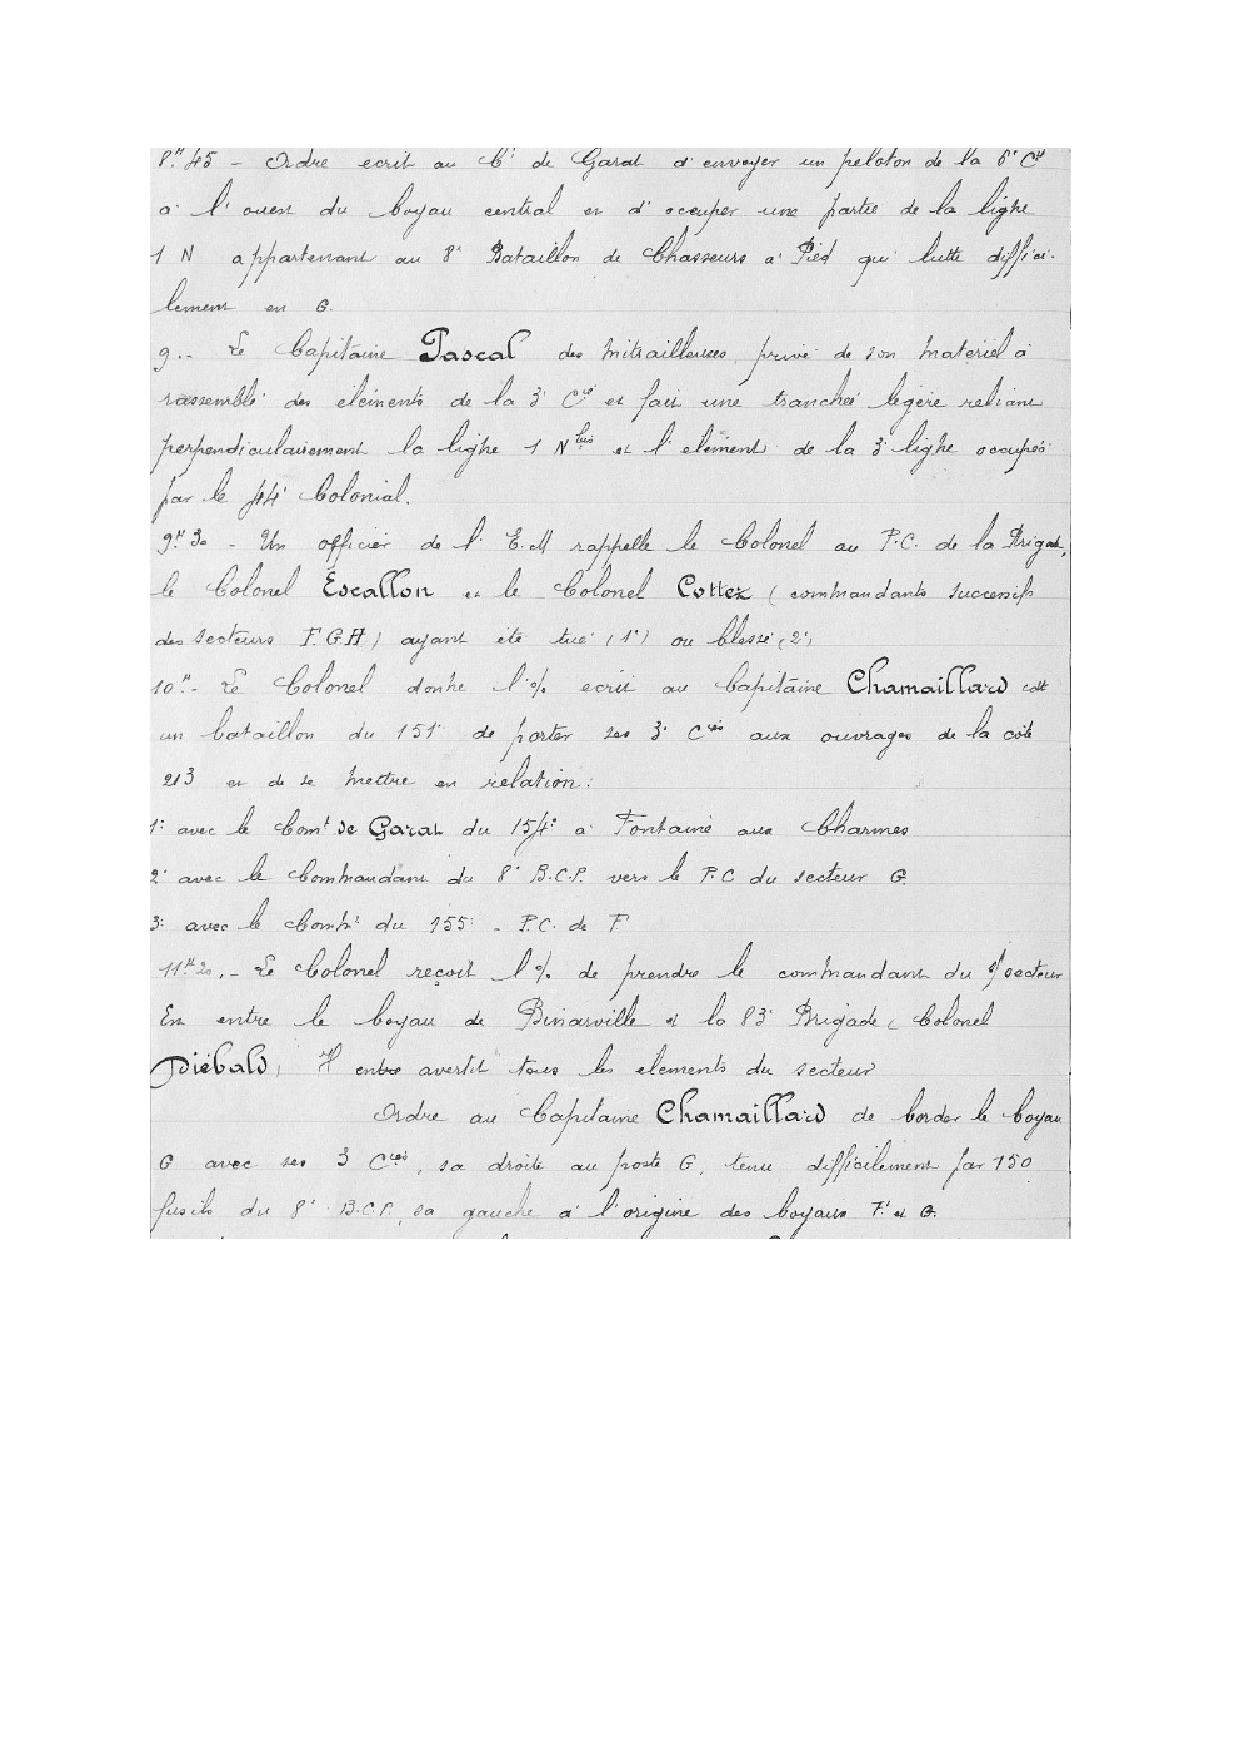 8h45 - Ordre ecrit au Ct de Garat d'envoyer un peloton de la 6e Cie
a l'ouest du boyau central et d'occuper une partie de la ligne
1 N appartenant au 8e Bataillon de Chasseurs à Pied qui lutte diffici-
lement en G.
9.- Le Capitaine Pascal des mitrailleuses privé de son materiel a
rassemblé des elements de la 3e Cie et fait une tranchée légère reliant
perpendiculairement la ligne 1 N bis et l'element de la 3e ligne occupés
par le 44e Colonial.
9h30 - Un officier de l'E.M rappelle le Colonel au P.C. de la Brigade,
le Colonel Escallon et le Colonel Cottez (commandants successifs
des secteurs F.G.H) ayant été tué (1e) ou blessé (2e)
10h.- Le Colonel donne l'% ecrit au Capitaine Chamaillard cdt
un bataillon du 151e de porter ses 3e Cies aux ouvrages de la côte
213 et de se mettre en relation:
1: avec le Comt de Garat du 154e à Fontaine aux Charmes
2e avec le Commandant du 8e B.C.P. vers le P.C du secteur G.
3: avec le Comt du 155e - P.C. de F
11h20.- Le Colonel reçoit l'% de prendre le commandant du s/secteur
Est entre le boyau de Binarville et la 83e Brigade (Colonel
Diébold) Il entre avertit tous les elements du secteur
Ordre au Capitaine Chamaillard de border le boyau
G avec ses 3 Cies, sa droite au poste G, tenu difficilement par 150
fusils du 8e B.C.P., sa gauche à l'origine des boyaux F. et G.